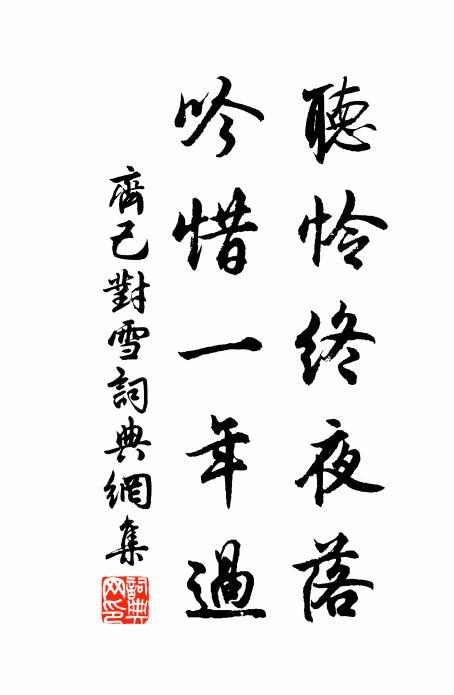 聽怜終夜落
吟惜一年過
齊己對雪詞典網集
詞典
网印